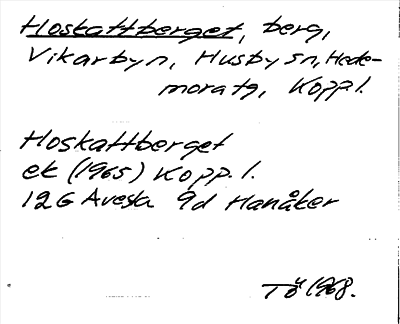 Hoskattberget, berg,
Vikarbyn, Husby sn, Hede-
mora tg, Kopp l.
Hoskattberget
ek (1965) Kopp. l.
12G Avesta 9d Hanåker
Tö 1968.